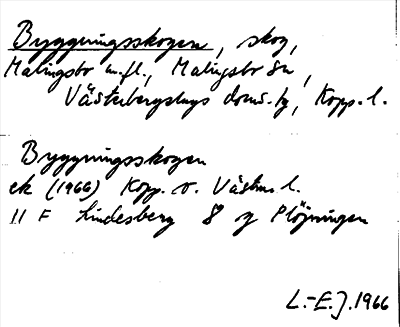 Byggningsskogen, skog,
Malingsbo m.fl., Malingsbo sn,
Västerbergslags doms.hg, Kopp. l.
Byggningsskogen
ek (1966) Kopp. o. Västm. l.
11 F Lindesberg 8 g Plöjningen
L.-E.J. 1966